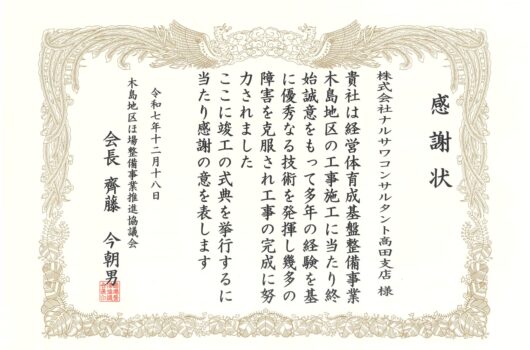 感謝状
株式会社ナルサワコンサルタント高田支店 様
貴社は経営体育成基盤整備事業
木島地区の工事施工に当たり終
始誠意をもって多年の経験を基
に優秀なる技術を発揮し幾多の
障害を克服され工事の完成に努
力されました
ここに竣工の式典を挙行するに
当たり感謝の意を表します
令和七年十二月十八日
木島地区ほ場整備事業推進協議会
会長 齊藤 今朝男